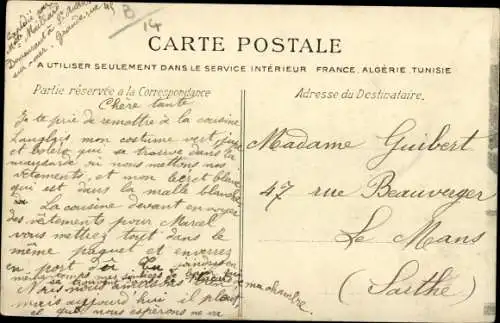 Expédié par
Mme Maillard
Demeurant à St Aubin
sur mer. Grande rue 45
B
14
CARTE POSTALE
A UTILISER SEULEMENT DANS LE SERVICE INTÉRIEUR FRANCE, ALGÉRIE, TUNISIE
Partie réservée à la Correspondance
Adresse du Destinataire.
Chère tante
Je te prie de remettre à la cousine
Langlais mon costume vert, jupe
et boléro qui se trouve dans la
mansarde où nous mettons nos
vêtements, et mon béret blanc
qui est dans la malle blanche
La cousine devant envoyer
des vêtements pour Marcel
vous mettrez tout dans le
même paquet et enverrez
en port dû. Tu
même temps mes
ma chambre.
Nous
mais aujourd'hui il pleut
ce que nous espérons ne va
Madame Guibert
47 rue Beauverger
Le Mans
(Sarthe)